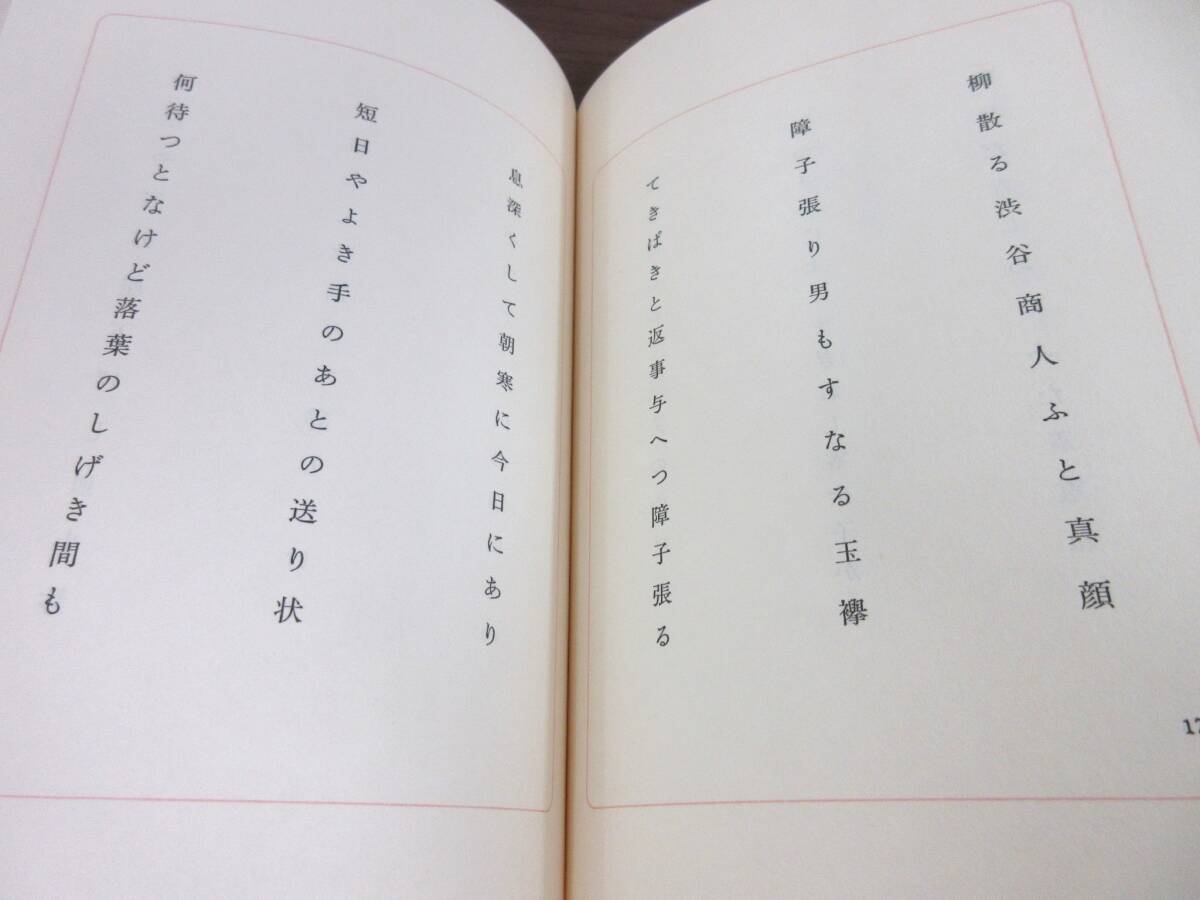 柳散る渋谷商人ふと真顔
障子張り男もすなる玉襷
てきぱきと返事与へつ障子張る
息深くして朝寒に今日にあり
短日やよき手のあとの送り状
何待つとなけど落葉のしげき間も